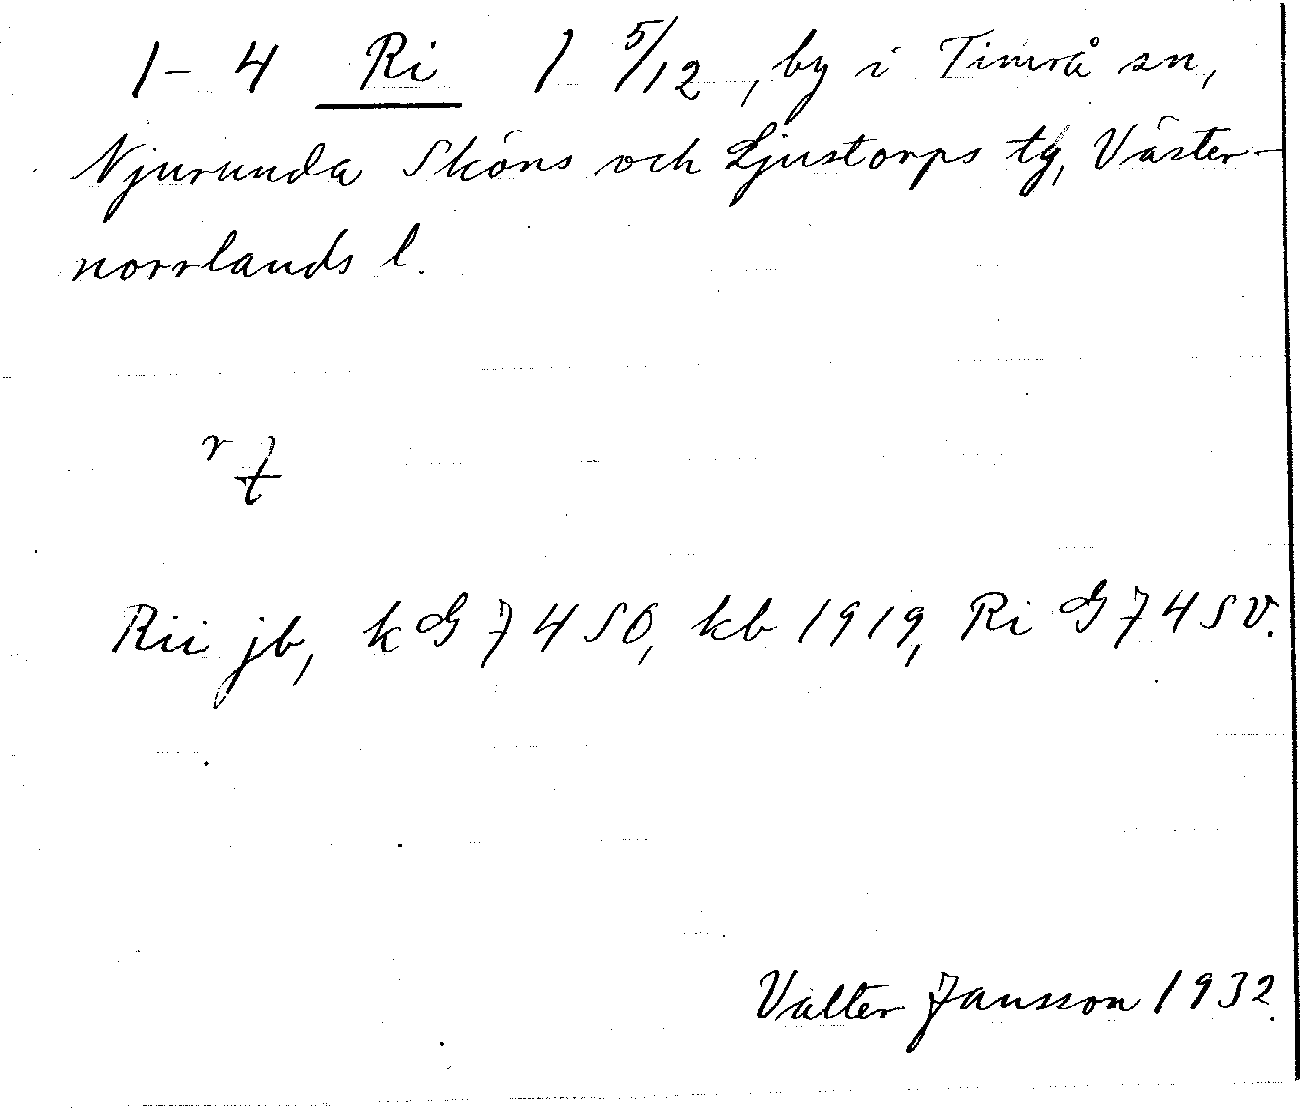 1-4 Ri 1 5/12, by i Timrå sn,
Njurunda Sköns och Ljustorps tg, Väster-
norrlands l.
Rii jb, kG 74 SO, kb 1919, Ri G 74 SV.
Valter Jansson 1932.